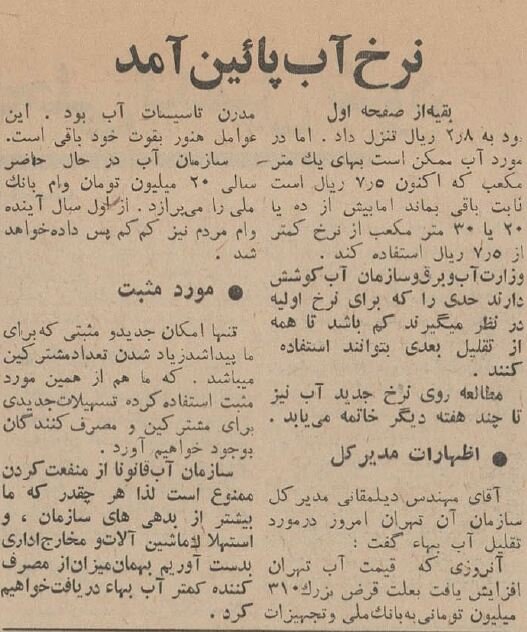 نرخ آب پائین آمد
بقیه از صفحه اول
بود به ۲٫۸ ریال تنزل داد . اما در
مورد آب ممکن است بهای یك متر
مکعب که اکنون ۷٫۵ ریال است
ثابت باقی بماند اما بیش از ده یا
۲۰ یا ۳۰ متر مکعب از نرخ کمتر
از ۷٫۵ ریال استفاده کند .
وزارت آب و برق و سازمان آب کوشش
دارند حدی را که برای نرخ اولیه
در نظر میگیرند کم باشد تا همه
از تقلیل بعدی بتوانند استفاده
کنند .
مطالعه روی نرخ جدید آب نیز
تا چند هفته دیگر خاتمه می‌یابد .
● اظهارات مدیر کل
آقای مهندس دیلمقانی مدیر کل
سازمان آن تهران امروز در مورد
تقلیل آب بهاء گفت :
آنروزی که قیمت آب تهران
افزایش یافت بعلت قرض بزرك ۳۱۰
میلیون تومانی به بانك ملی و تجهیزات
مدرن تاسیسات آب بود . این
عوامل هنور بقوت خود باقی است.
سازمان آب در حال حاضر
سالی ۲۰ میلیون تومان وام بانك
ملی را می‌پرازد . از اول سال آینده
وام مردم نیز کم کم پس داده خواهد
شد .
● مورد مثبت
تنها امکان جدید و مثبتی که برای
ما پیدا شد زیاد شدن تعداد مشترکین
میباشد . که ما هم از همین مورد
مثبت استفاده کرده تسهیلات جدیدی
برای مشترکین و مصرف کنندگان
بوجود خواهیم آورد .
سازمان آب قانونا از منفعت کردن
ممنوع است لذا هر چقدر که ما
بیشتر از بدهی های سازمان ، و
استهلاك ماشین آلات و مخارج اداری
بدست آوریم بهمان میزان از مصرف
کننده کمتر آب بهاء دریافت خواهیم
کرد .